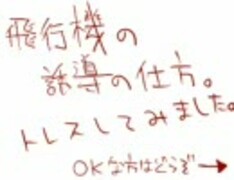 飛行機の
誘導の仕方。
トレスしてみました。
OKな方はどうぞ→